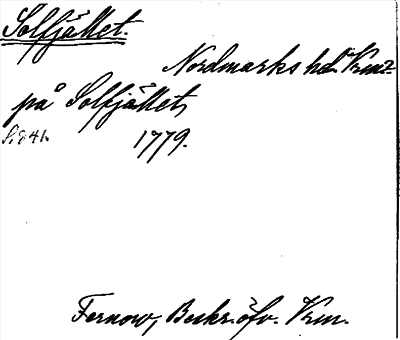 Solfjället.
Nordmarks hd. Vrml.
på Solfjället,
S. 841. 1779.
Fernow, Beskr. öfv. Vrm.